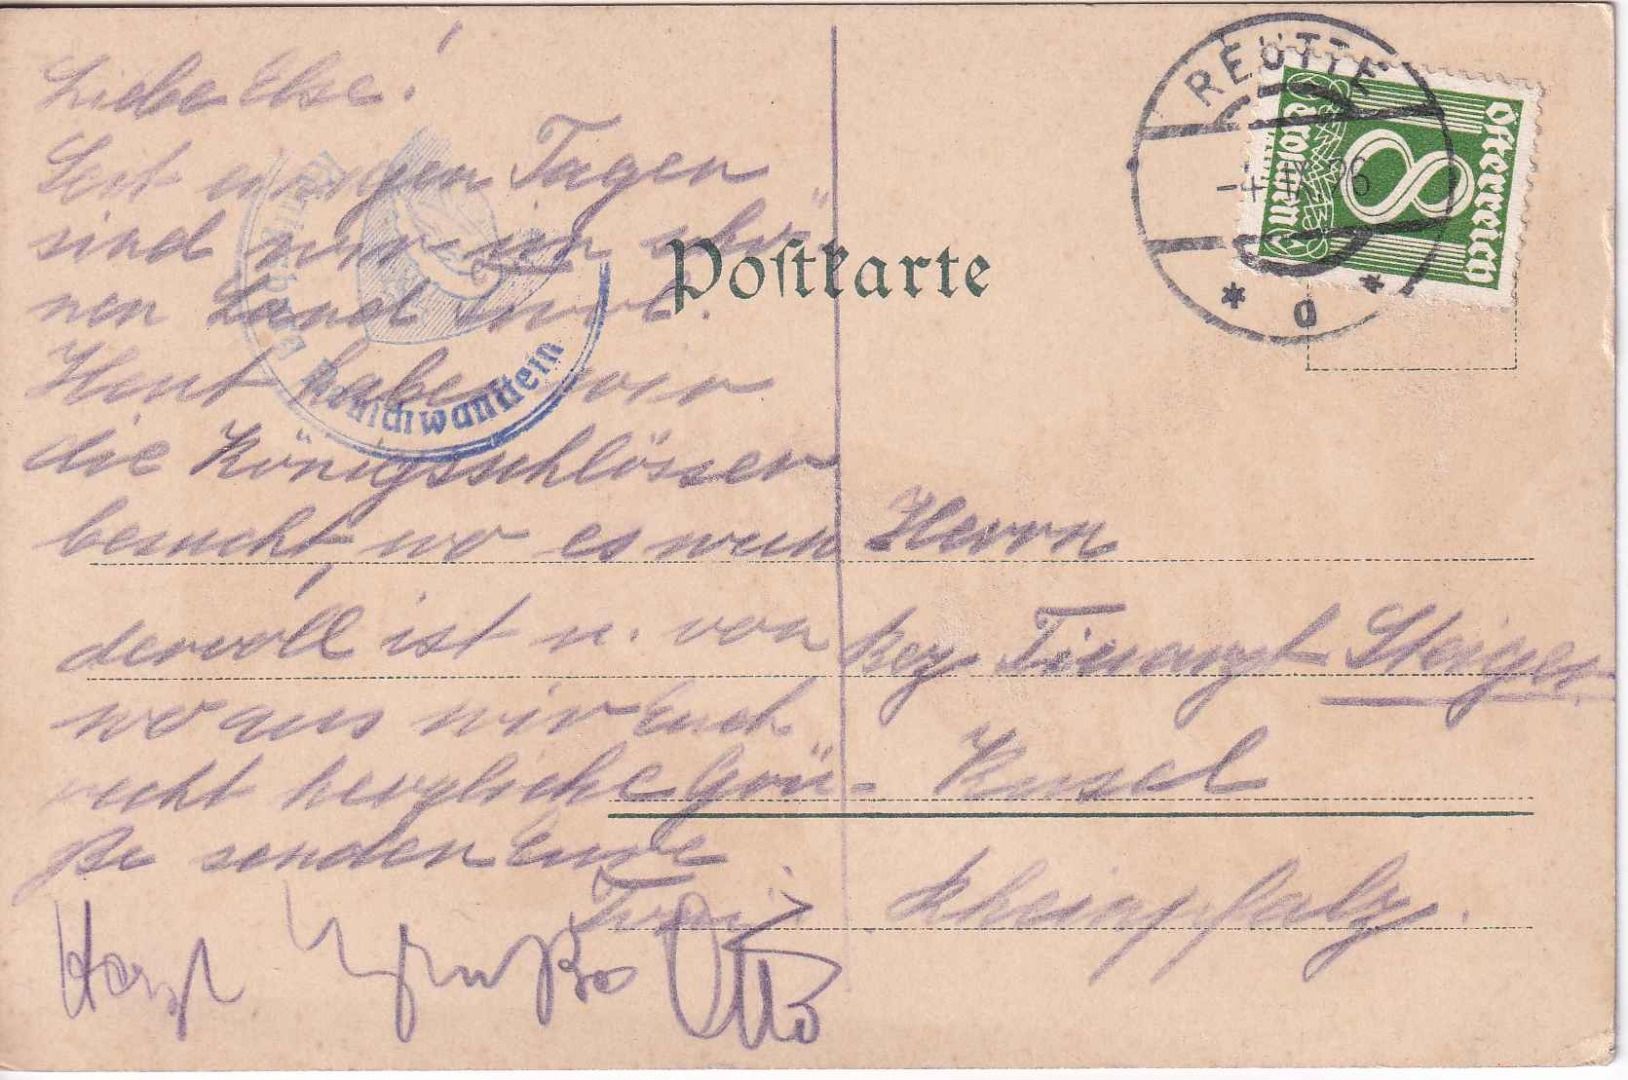 Liebe Else!
Seit einigen Tagen
sind wir im schö-
nen Land Tirol.
Heut haben wir
die Königsschlösser
besucht wo es wun
dervoll ist u. von
wo aus wir Euch
recht herzliche Grü-
ße senden Eure
Herzl Grüße Otto
Postkarte
REUTTE
-4.IX.26
* a *
Österreich
8
Groschen
Neuschwanstein
Herrn
Bez. Tierarzt Steiger
Kusel
Rheinpfalz.